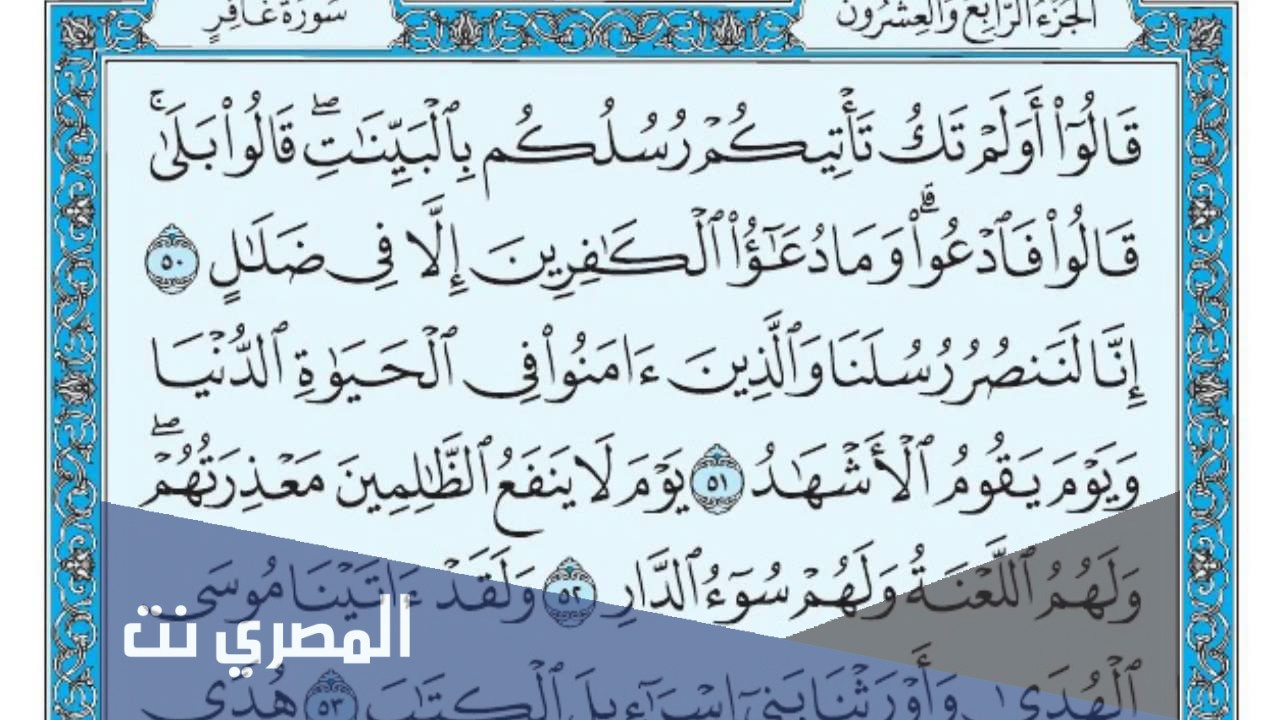 الجزء الرابع والعشرون
سورة غافر
قَالُوٓا۟ أَوَلَمْ تَكُ تَأْتِيكُمْ رُسُلُكُم بِٱلْبَيِّنَـٰتِ ۖ قَالُوا۟ بَلَىٰ ۚ
قَالُوا۟ فَٱدْعُوا۟ ۗ وَمَا دُعَـٰٓؤُا۟ ٱلْكَـٰفِرِينَ إِلَّا فِى ضَلَـٰلٍ ٥٠
إِنَّا لَنَنصُرُ رُسُلَنَا وَٱلَّذِينَ ءَامَنُوا۟ فِى ٱلْحَيَوٰةِ ٱلدُّنْيَا
وَيَوْمَ يَقُومُ ٱلْأَشْهَـٰدُ ٥١ يَوْمَ لَا يَنفَعُ ٱلظَّـٰلِمِينَ مَعْذِرَتُهُمْ ۖ
وَلَهُمُ ٱللَّعْنَةُ وَلَهُمْ سُوٓءُ ٱلدَّارِ ٥٢ وَلَقَدْ ءَاتَيْنَا مُوسَى
ٱلْهُدَىٰ وَأَوْرَثْنَا بَنِىٓ إِسْرَٰٓءِيلَ ٱلْكِتَـٰبَ ٥٣ هُدًى
المصري نت